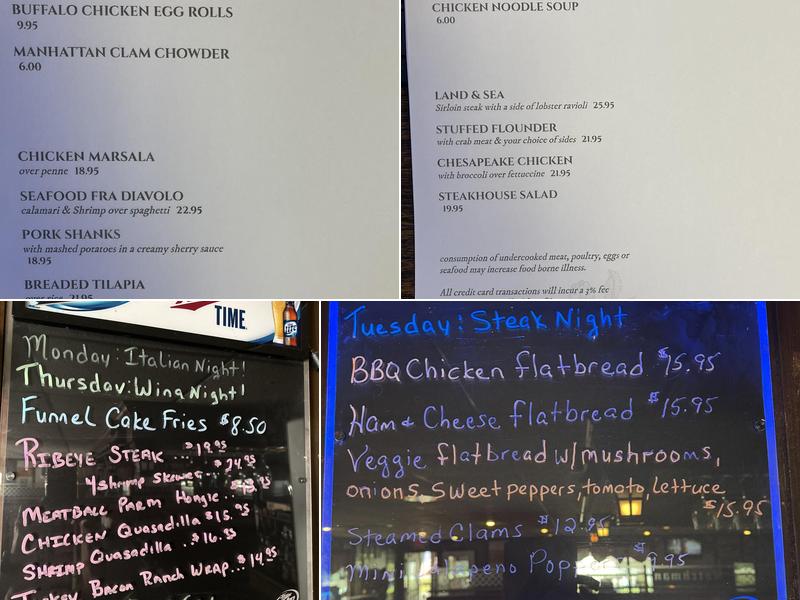 BUFFALO CHICKEN EGG ROLLS
9.95
MANHATTAN CLAM CHOWDER
6.00
CHICKEN MARSALA
over penne 18.95
SEAFOOD FRA DIAVOLO
calamari & Shrimp over spaghetti 22.95
PORK SHANKS
with mashed potatoes in a creamy sherry sauce
18.95
BREADED TILAPIA
over rice 21.95
CHICKEN NOODLE SOUP
6.00
LAND & SEA
Sirloin steak with a side of lobster ravioli 25.95
STUFFED FLOUNDER
with crab meat & your choice of sides 21.95
CHESAPEAKE CHICKEN
with broccoli over fettuccine 21.95
STEAKHOUSE SALAD
19.95
consumption of undercooked meat, poultry, eggs or
seafood may increase food borne illness.
All credit card transactions will incur a 3% fee
TIME
Monday: Italian Night!
Thursday: Wing Night!
Funnel Cake Fries $8.50
RIBEYE STEAK ... $19.95
4 shrimp Skewer ... $24.95
MEATBALL PARM Hoagie ..
CHICKEN Quasadilla $15.95
SHRIMP Quasadilla .. $16.95
Turkey Bacon Ranch WRAP.. $14.95
Tuesday: Steak Night
BBQ Chicken flatbread $15.95
Ham & Cheese flatbread $15.95
Veggie flatbread w/mushrooms,
onions, Sweet peppers, tomato, lettuce
$15.95
Steamed Clams $12.95
Mini Jalapeno Poppers 9.95